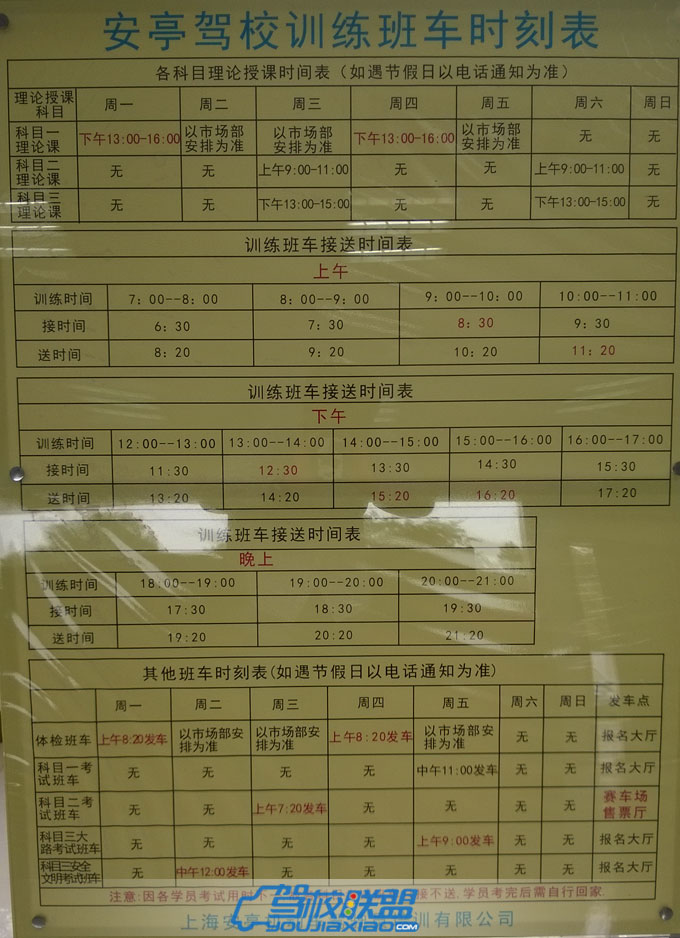 安亭驾校训练班车时刻表
各科目理论授课时间表（如遇节假日以电话通知为准）
理论授课科目 周一 周二 周三 周四 周五 周六 周日
科目一理论课 下午13:00-16:00 以市场部安排为准 以市场部安排为准 下午13:00-16:00 以市场部安排为准 无 无
科目二理论课 无 无 上午9:00-11:00 无 无 上午9:00-11:00 无
科目三理论课 无 无 下午13:00-15:00 无 无 下午13:00-15:00 无
训练班车接送时间表
上午
训练时间 7：00--8：00 8：00--9：00 9：00--10：00 10:00--11:00
接时间 6：30 7：30 8：30 9：30
送时间 8：20 9：20 10：20 11：20
训练班车接送时间表
下午
训练时间 12:00--13:00 13:00--14:00 14:00--15:00 15:00--16:00 16:00--17:00
接时间 11:30 12:30 13:30 14:30 15:30
送时间 13:20 14:20 15:20 16:20 17:20
训练班车接送时间表
晚上
训练时间 18:00--19:00 19:00--20:00 20:00--21:00
接时间 17:30 18:30 19:30
送时间 19:20 20:20 21:20
其他班车时刻表(如遇节假日以电话通知为准)
周一 周二 周三 周四 周五 周六 周日 发车点
体检班车 上午8:20发车 以市场部安排为准 以市场部安排为准 上午8:20发车 以市场部安排为准 无 无 报名大厅
科目一考试班车 无 无 无 无 中午11:00发车 无 无 报名大厅
科目二考试班车 无 无 上午7:20发车 无 无 无 无 赛车场售票厅
科目三大路考试班车 无 无 无 无 上午9:00发车 无 无 报名大厅
科目三安全文明考试班车 无 中午12:00发车 无 无 无 无 无 报名大厅
注意:因各学员考试用时不 接不送,学员考完后需自行回家.
上海安亭 训有限公司
驾校联盟
YOUJIAXIAO.COM